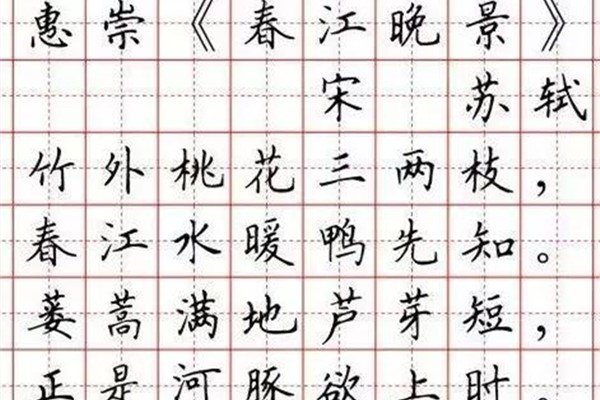 惠崇《春江晚景》
宋 苏轼
竹外桃花三两枝，
春江水暖鸭先知。
蒌蒿满地芦芽短，
正是河豚欲上时。